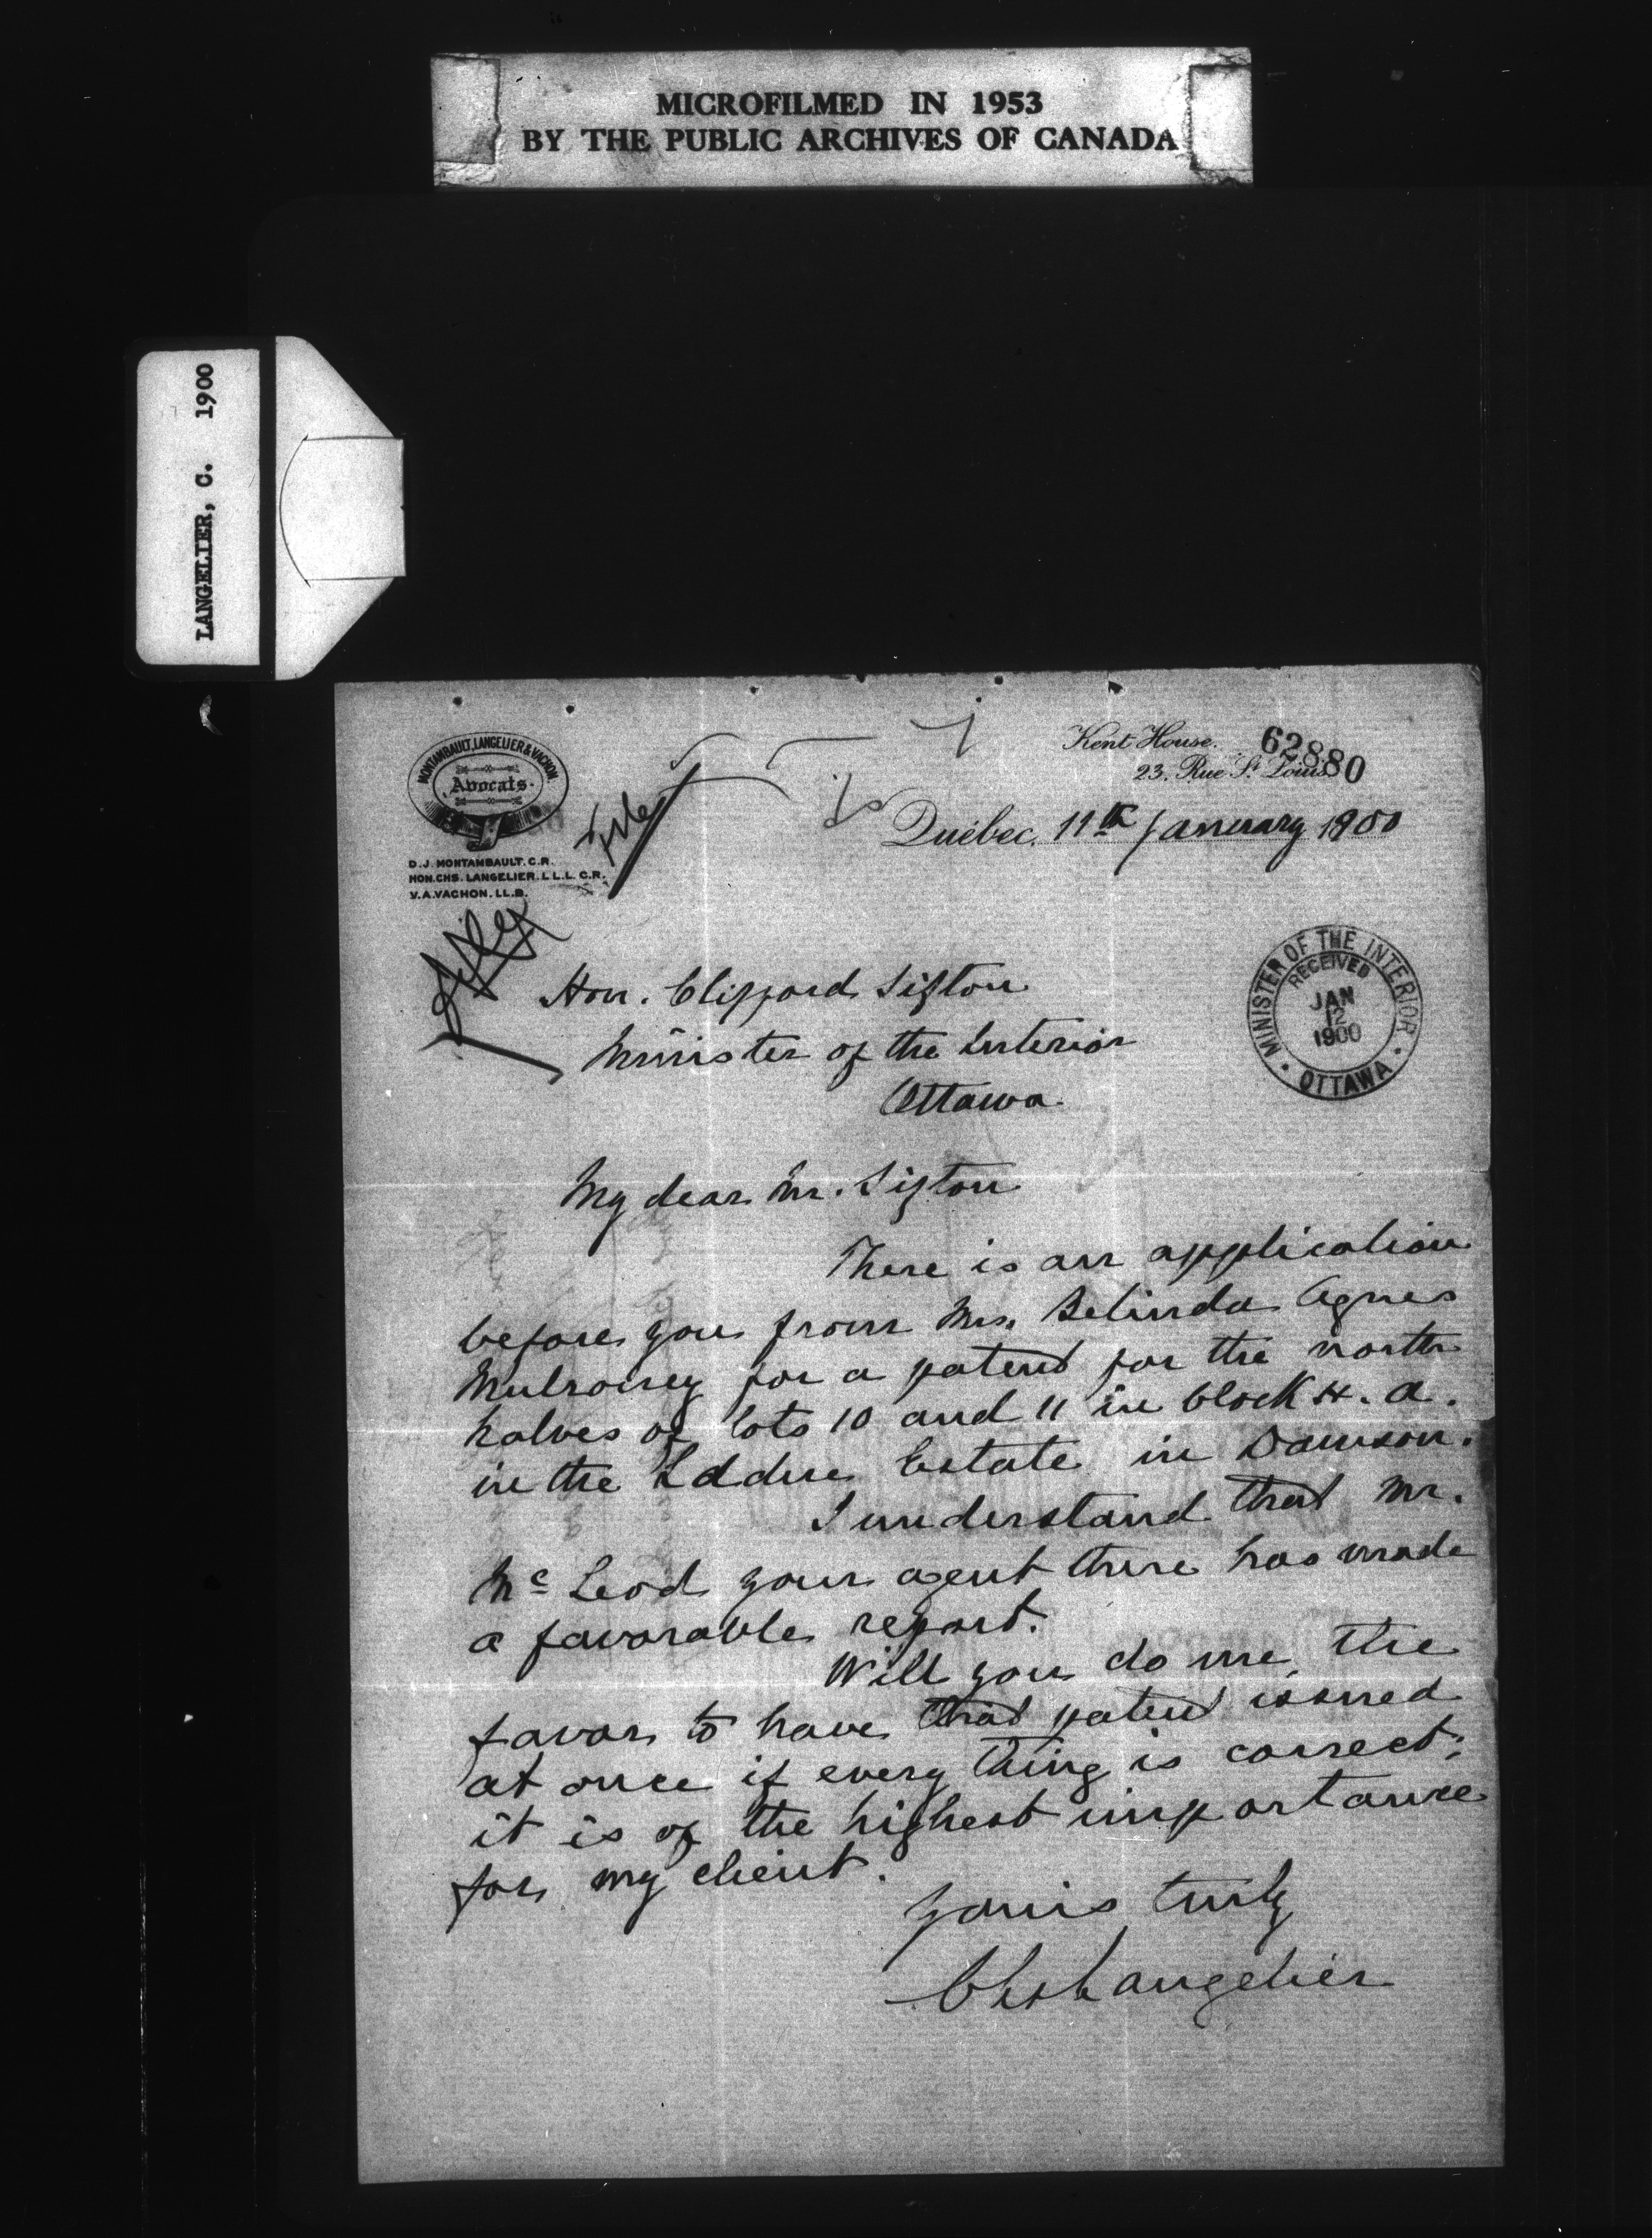 MICROFILMED IN 1953
BY THE PUBLIC ARCHIVES OF CANADA
LANGELIER, C. 1900
MONTAMBAULT, LANGELIER & VACHON.
Avocats.
D.J. MONTAMBAULT. C.R.
HON. CHS. LANGELIER. L.L.L. C.R.
V.A. VACHON. LL.B.
Kent House.
62880
23, Rue St. Louis
File
Québec, 11th January 1900
MINISTER OF THE INTERIOR
RECEIVED
JAN
12
1900
OTTAWA
Hon. Clifford Sifton
Minister of the Interior
Ottawa.
My dear Mr. Sifton
There is an application
before you from Mrs. Belinda Agnes
Mulroney for a patent for the north
halves of lots 10 and 11 in block H. A.
in the Laddue Estate in Dawson.
I understand that Mr.
Mc Leod your agent there has made
a favorable report.
Will you do me, the
favor to have that patent issued
at once if every thing is correct;
it is of the highest importance
for my client.
Yours truly
Chs Langelier